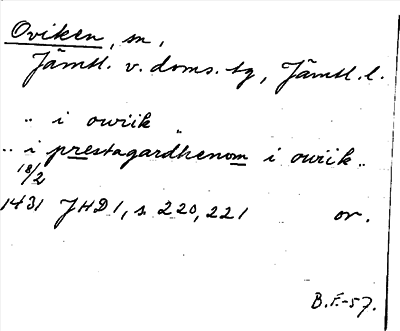 Oviken, sn,
Jämtl. v. doms. tg, Jämtl. l.
.. i owiik ..
.. i prestagardhenom i owiik ..
18/2
1431 JHD 1, s. 220, 221 or.
B.F.-57.